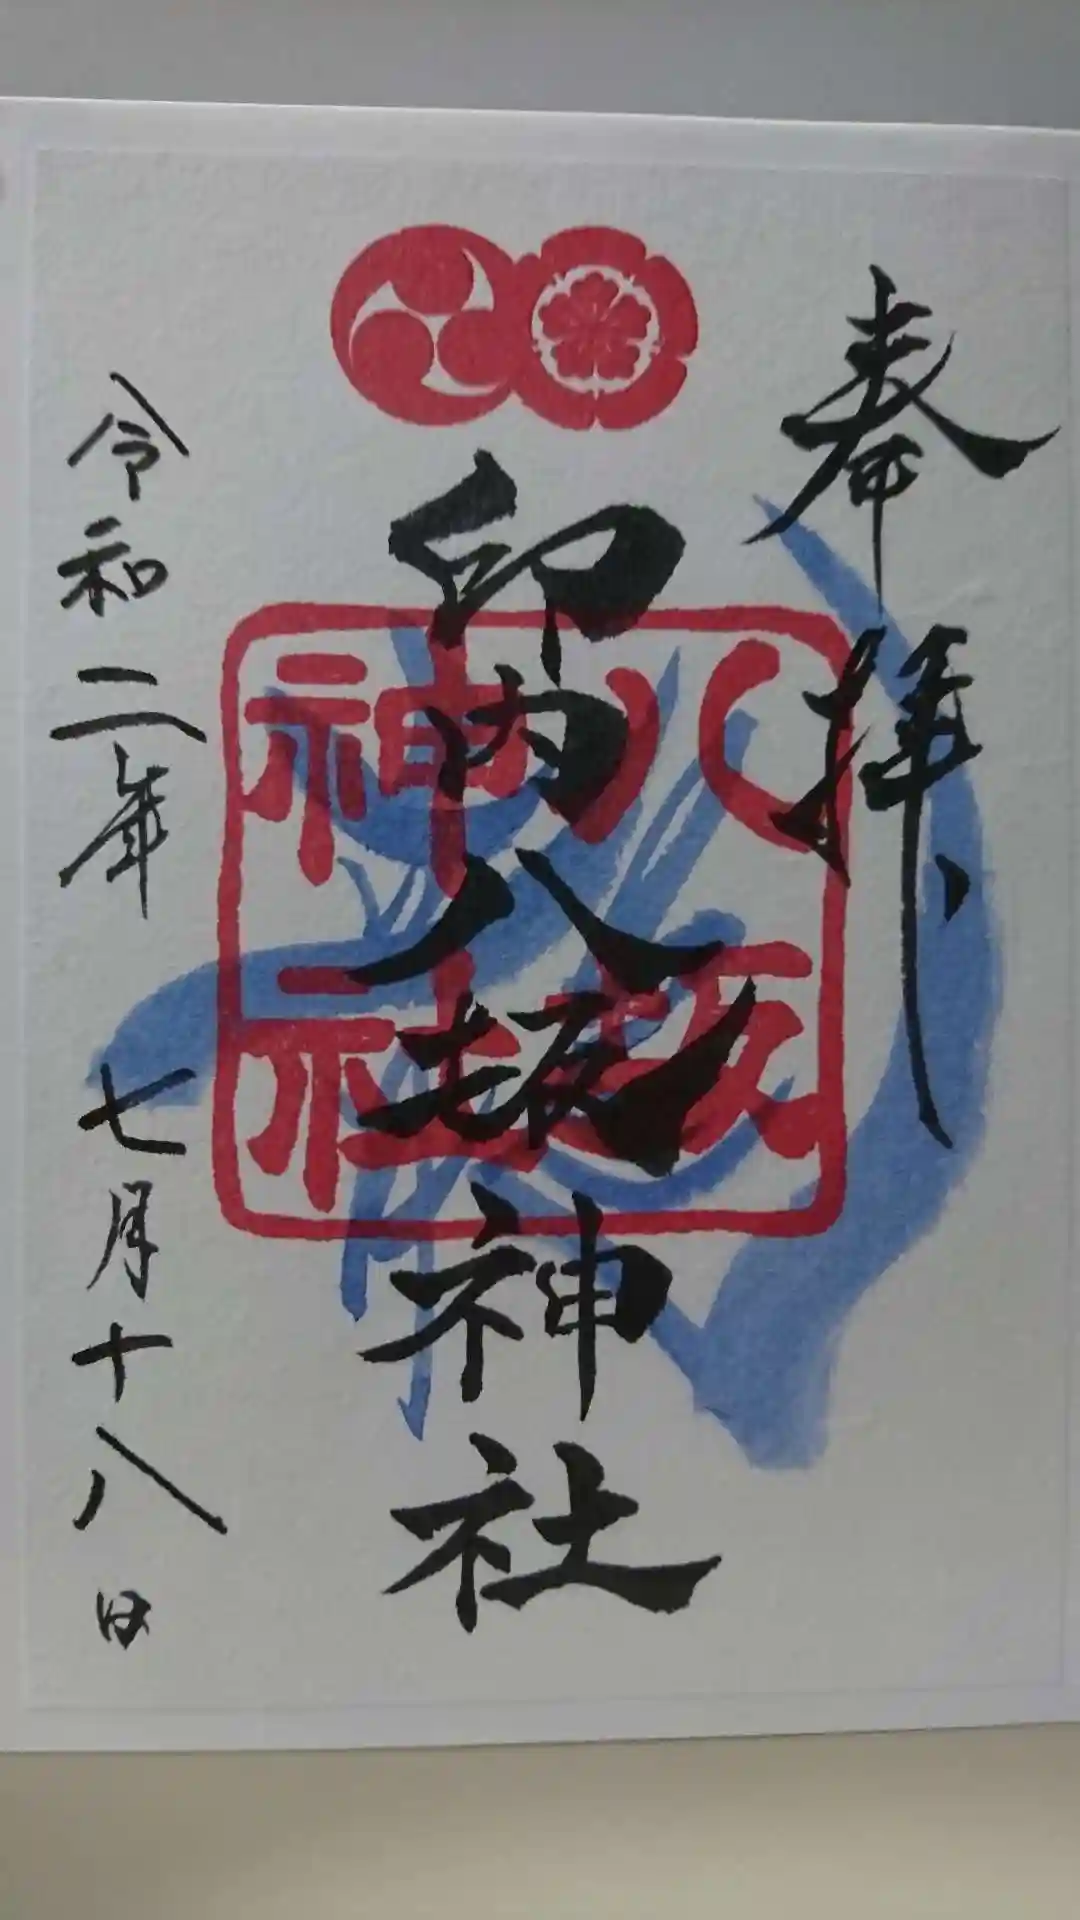 奉拝
印内八坂神社
八坂神社
令和二年 七月十八日